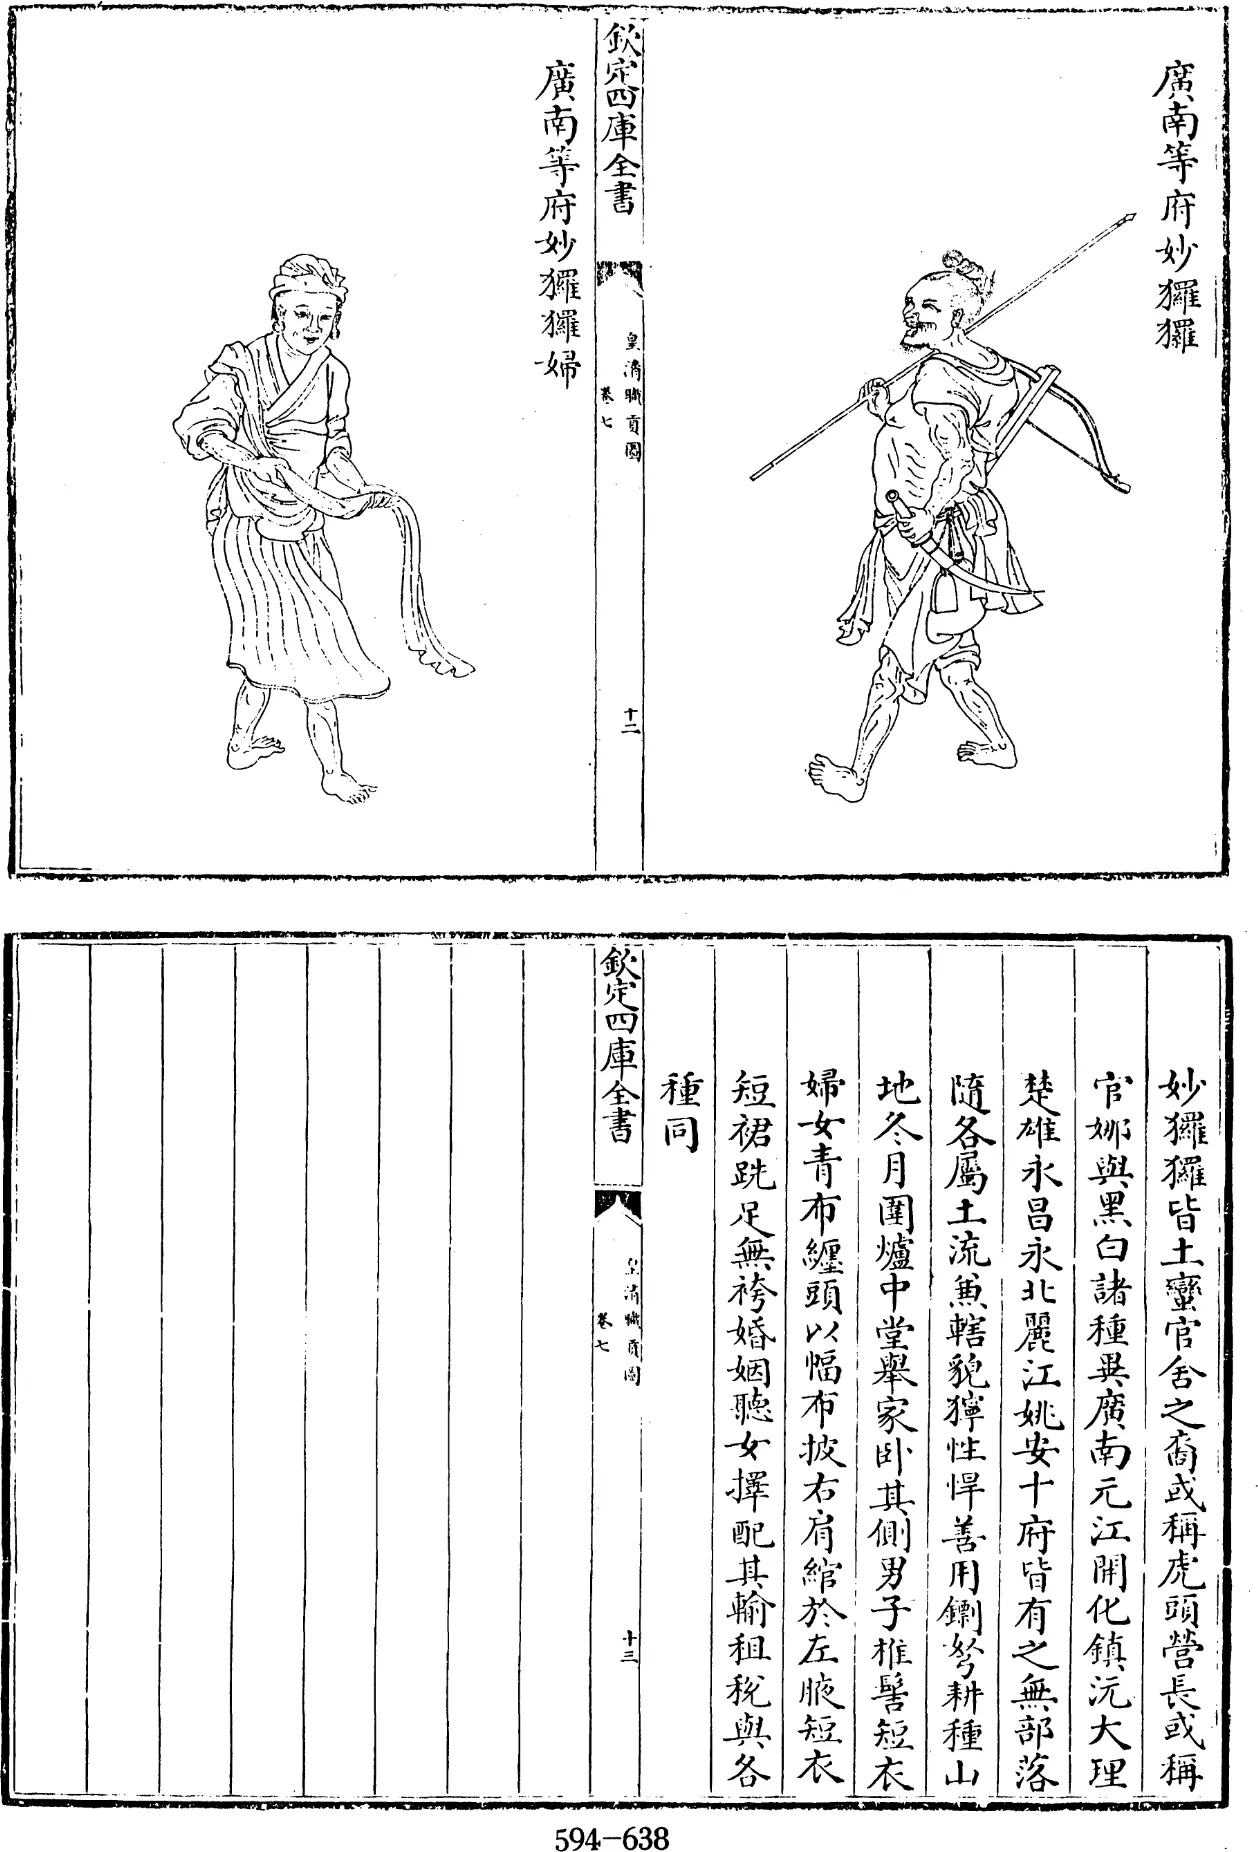 廣南等府妙玀玀
欽定四庫全書
皇清職貢圖
卷七
十二
廣南等府妙玀玀婦
妙玀玀皆土蠻官舍之裔或稱虎頭營長或稱
官娜與黑白諸種異廣南元江開化鎮沅大理
楚雄永昌永北麗江姚安十府皆有之無部落
隨各屬土流兼轄貌獰性悍善用鏢弩耕種山
地冬月圍爐中堂舉家卧其側男子椎髻短衣
婦女青布纏頭以幅布披右肩綰於左腋短衣
短裙跣足無袴婚姻聽女擇配其輸租稅與各
種同
欽定四庫全書
皇清職貢圖
卷七
十三
594-638